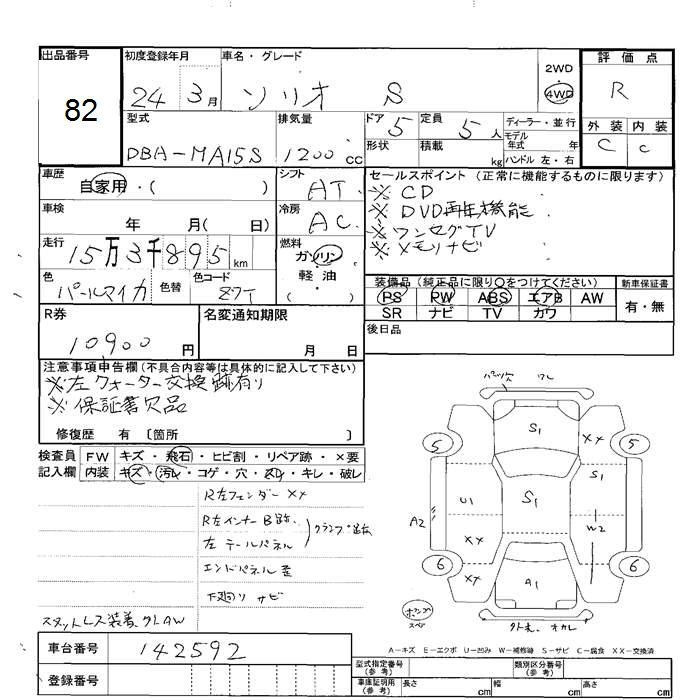 出品番号
82
初度登録年月
24 3月
車名・グレード
ソリオ S
2WD
4WD
評価点
R
外装 内装
C C
型式
DBA-MA15S
排気量
1200cc
ドア 5
定員 5人
形状
積載 kg
ディーラー・並行
モデル年式 年
ハンドル 左・右
車歴
自家用・( )
シフト
AT
セールスポイント (正常に機能するものに限ります)
※CD
※DVD再生機能
※ワンセグTV
※メモリナビ
車検
年 月( 日)
冷房
AC
走行
15万3千895km
燃料
ガソリン
軽油
( )
色
パールマイカ
色替
色コード
Z7T
装備品 (純正品に限り○をつけてください)
PS PW ABS エアB AW
SR ナビ TV カワ
新車保証書
有・無
R券
10900円
名変通知期限
月 日
後日品
注意事項申告欄(不具合内容等は具体的に記入して下さい)
※左クォーター交換跡有り
※保証書欠品
修復歴 有 〔箇所 〕
検査員記入欄
FW キズ・飛石・ヒビ割・リペア跡・×要
内装 キズ・汚れ・コゲ・穴・スレ・キレ・破レ
R左フェンダーXX
R左インナーB跡.
左テールパネル
クランプ跡
エンドパネル歪
下廻りサビ
スタットレス装着、
車台番号
142592
登録番号
S1
XX
5
5
S1
U1
S1
A2
W2
XX
6
6
XX
A1
A−キズ E−エクボ U−凹み W−補修跡 S−サビ C−腐食 XX−交換済
型式指定番号(参考)
類別区分番号(参考)
車庫証明用(参考)
長さ cm
幅 cm
高さ cm